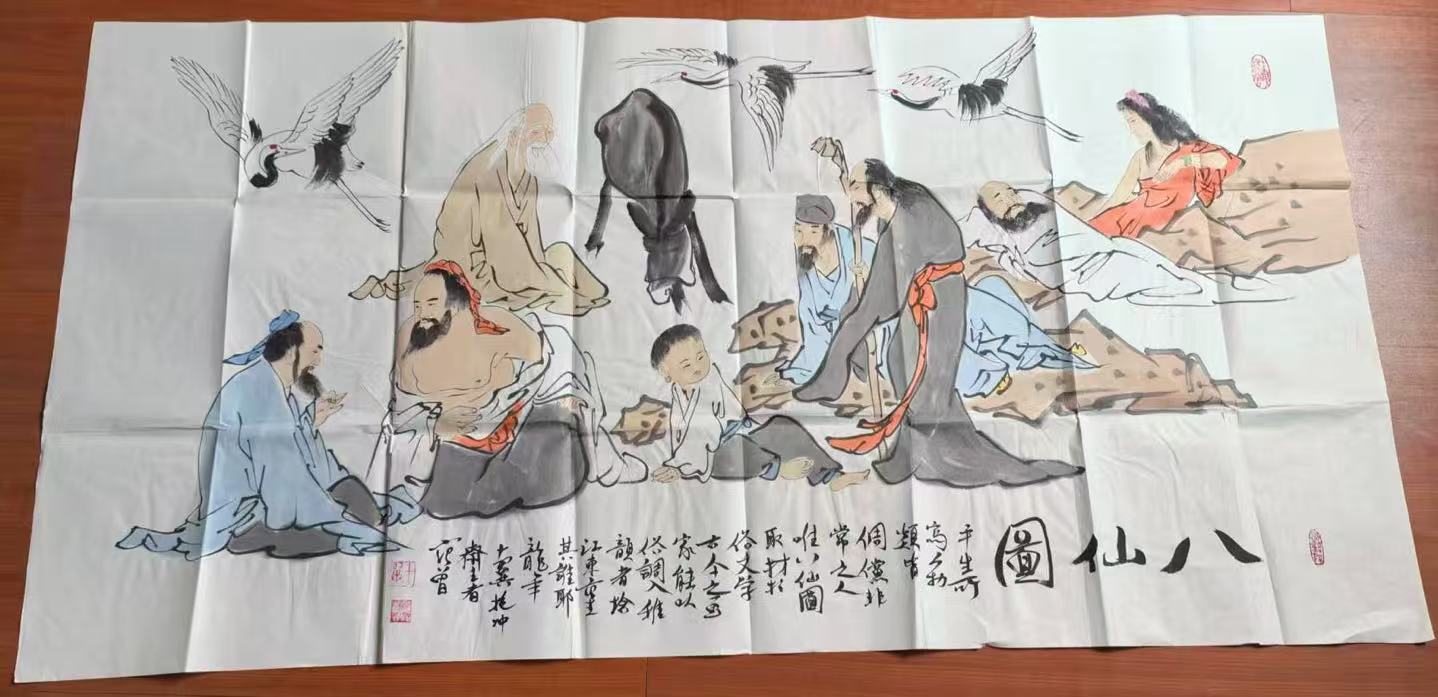 八仙圖
平生所
寫人物
類皆
倜儻非
常之人
唯八仙圖
取材於
俗文學
古今之畫
家能以
俗調入雅
韻者捨
江東
其誰耶
龍年
十翼抱冲
齋主者
范曾